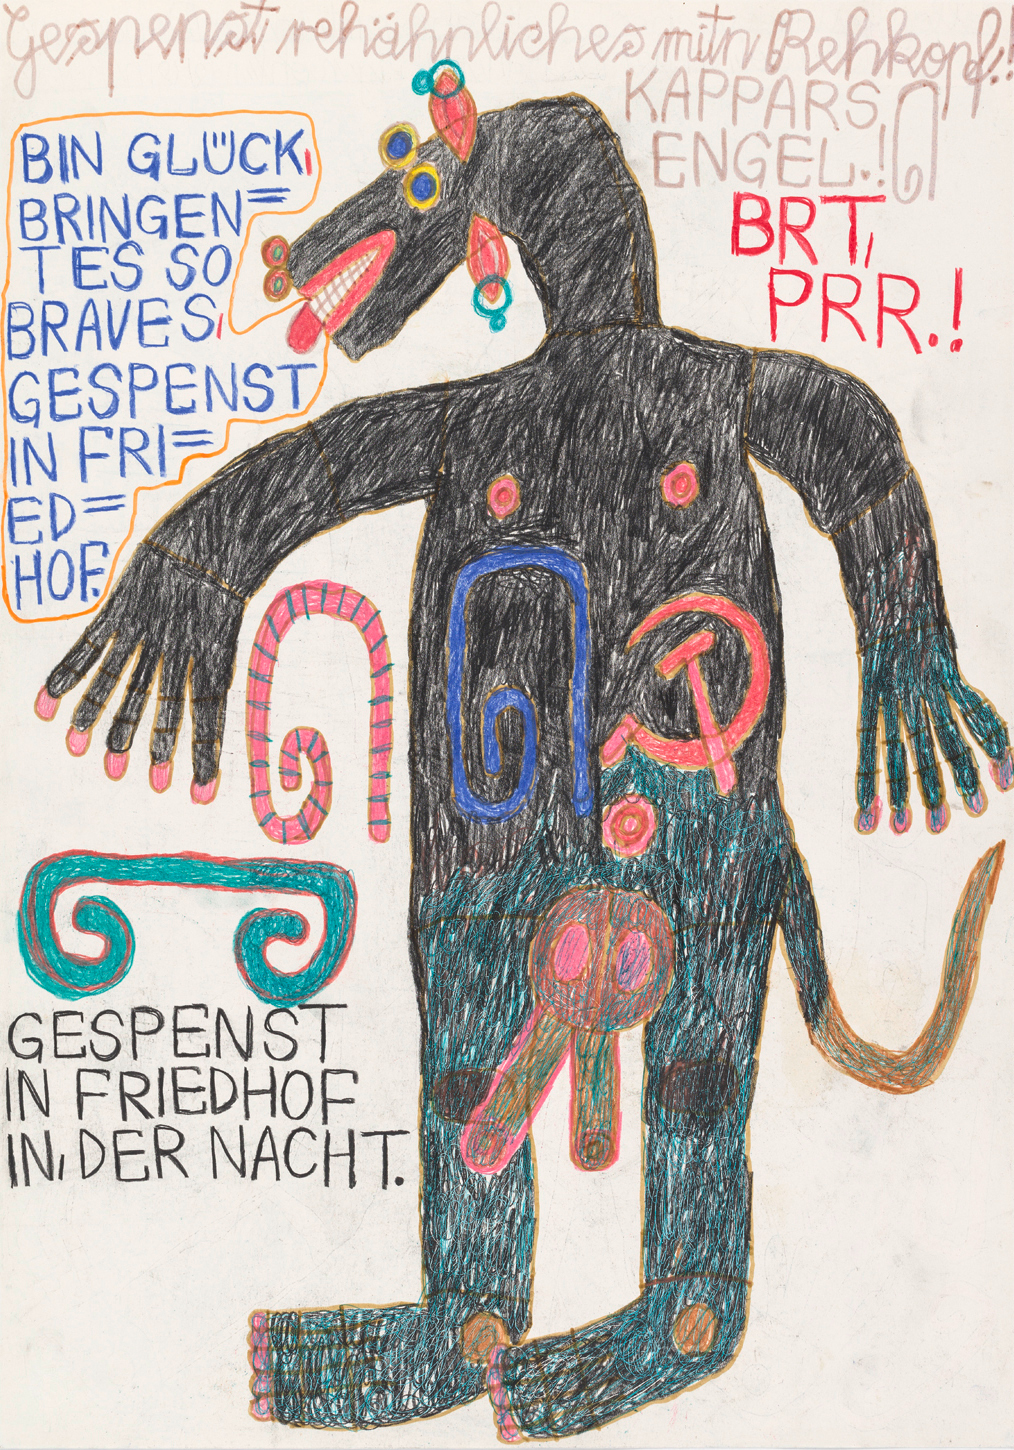 Gespenst rehähnliches mitn Rehkopf.!
KAPPARS
ENGEL.!
BRT,
PRR.!
BIN GLÜCK,
BRINGEN=
TES SO
BRAVES,
GESPENST
IN FRI=
ED=
HOF.
GESPENST
IN FRIEDHOF
IN, DER NACHT.